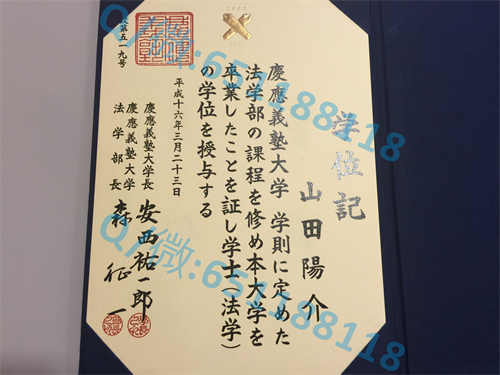 学位記
山田陽介
慶應義塾大学 学則に定めた
法学部の課程を修め本大学を
卒業したことを証し学士(法学)
の学位を授与する
平成十六年三月二十三日
慶應義塾大学長 安西祐一郎
慶應義塾大学
法学部長 森征一
第五一九号
Q/微:
Q/微: